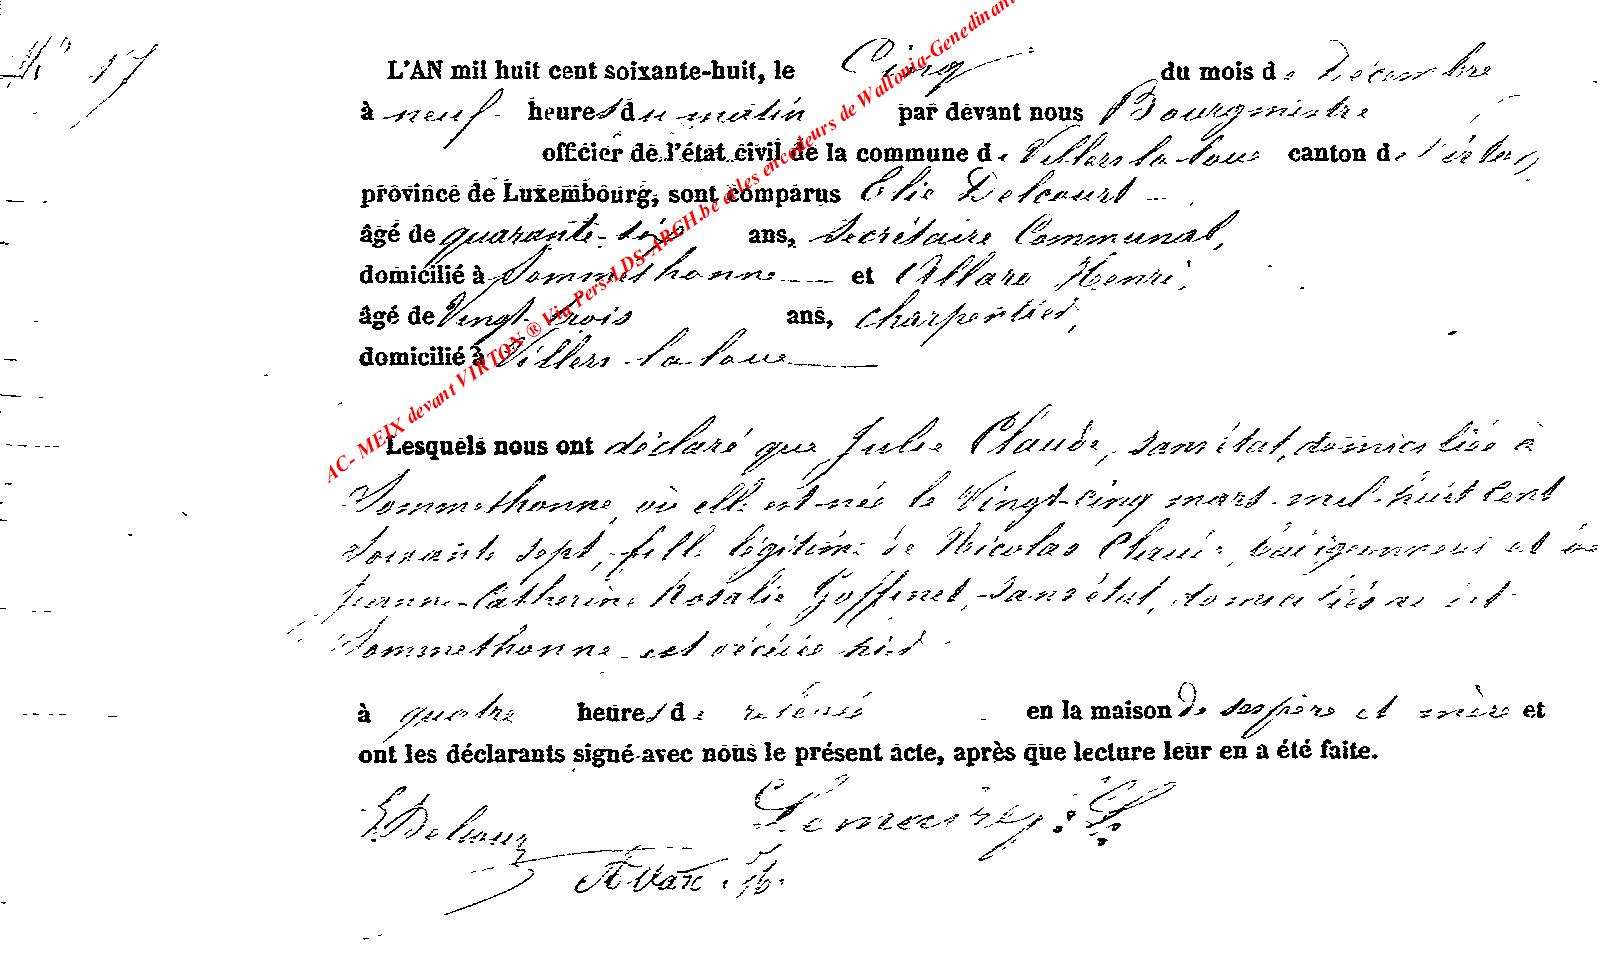 N° 17
L'AN mil huit cent soixante-huit, le Cinq du mois de Décembre
à neuf heures du matin par devant nous Bourgmestre
officier de l'état civil de la commune de Villers la loue canton de Virton,
province de Luxembourg, sont comparus Elie Delcourt
âgé de quarante- ans, Secrétaire Communal,
domicilié à Sommethonne et Allard Henri,
âgé de Vingt trois ans, charpentier,
domicilié à Villers-la loue
Lesquels nous ont déclaré que Julie Claude, sans état, domiciliée à
Sommethonne, où elle est née le Vingt-cinq mars mil-huit cent
soixante sept, fille légitime de Nicolas Claude, et de
Jeanne-Catherine Rosalie Goffinet, sans état, domiciliés au dit
Sommethonne est décédée hier
à quatre heures de relevée en la maison de ses père et mère et
ont les déclarants signé avec nous le présent acte, après que lecture leur en a été faite.
E. Delcour Lemaire, J: L:
AC- MEIX devant VIRTON ® Via Pers-LDS-ARCH.be & les encodeurs de Wallonia-Genedinant